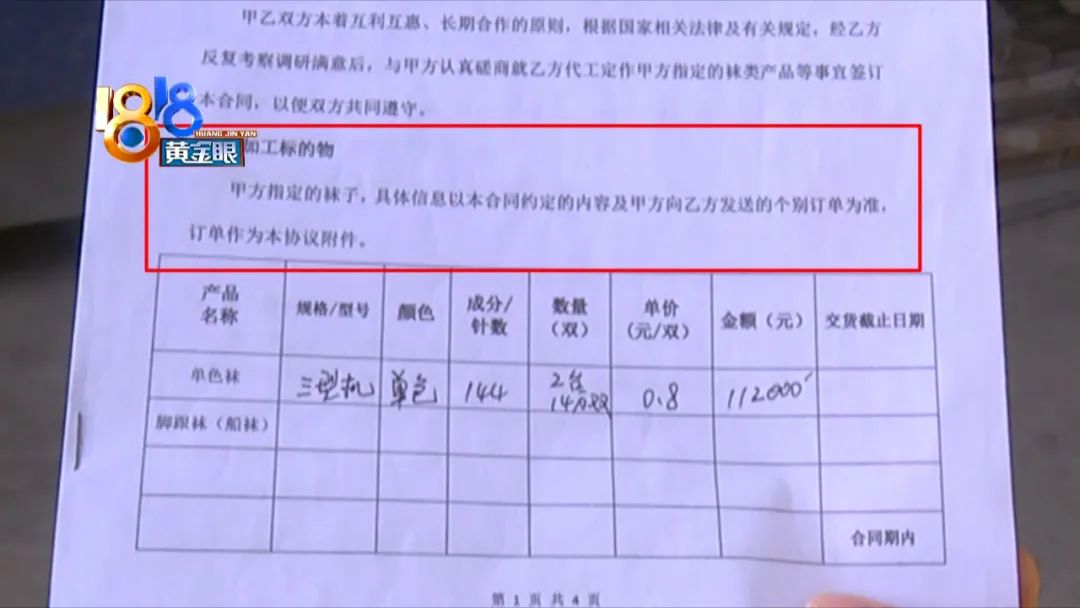 甲乙双方本着互利互惠、长期合作的原则，根据国家相关法律及有关规定，经乙方
反复考察调研满意后，与甲方认真磋商就乙方代工定作甲方指定的袜类产品等事宜签订
本合同，以便双方共同遵守。
1818
HUANG JIN YAN
黄金眼
加工标的物
甲方指定的袜子，具体信息以本合同约定的内容及甲方向乙方发送的个别订单为准，
订单作为本协议附件。
产品名称 规格/型号 颜色 成分/针数 数量（双） 单价（元/双） 金额（元） 交货截止日期
单色袜 三型机 单色 144 2台 14万双 0.8 112000
脚跟袜（船袜）
合同期内
第 1 页 共 4 页